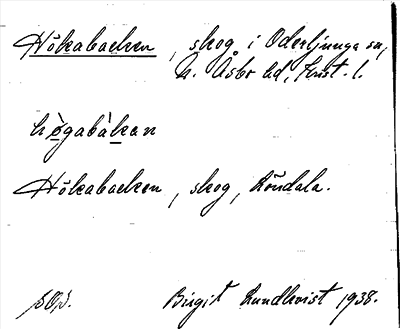 Hökabacken, skog i Oderljunga sn,
N. Åsbo hd, Krist. l.
hǿgabàkan
Hökabacken, skog, Röndala.
Birgit Lundkvist 1938.